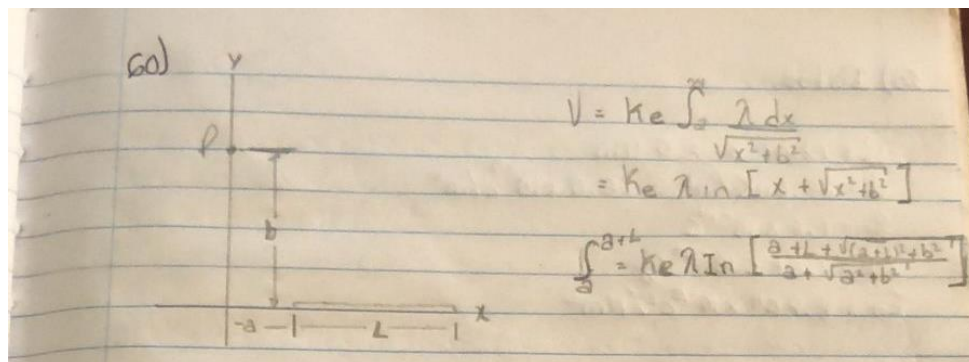 60)
y
P
b
-a — L — x
V = Ke ∫ₐ λ dx / √x²+b²
= Ke λ in [ x + √x²+b² ]
∫ₐ^(a+L) = Ke λ In [ a + L + √(a+L)²+b² / a + √a²+b² ]